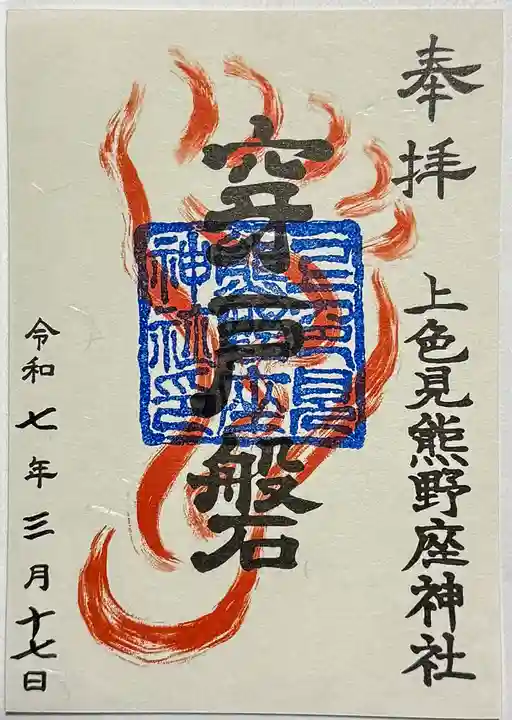 奉拝
上色見熊野座神社
穿戸磐
上色見
熊野座
神社印
令和七年三月十七日